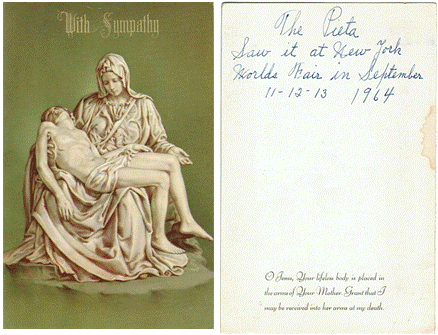 With Sympathy
The Pieta
Saw it at New York
Worlds Fair in September
11-12-13 1964
O Jesus, Your lifeless body is placed in
the arms of Your Mother. Grant that I
may be received into her arms at my death.